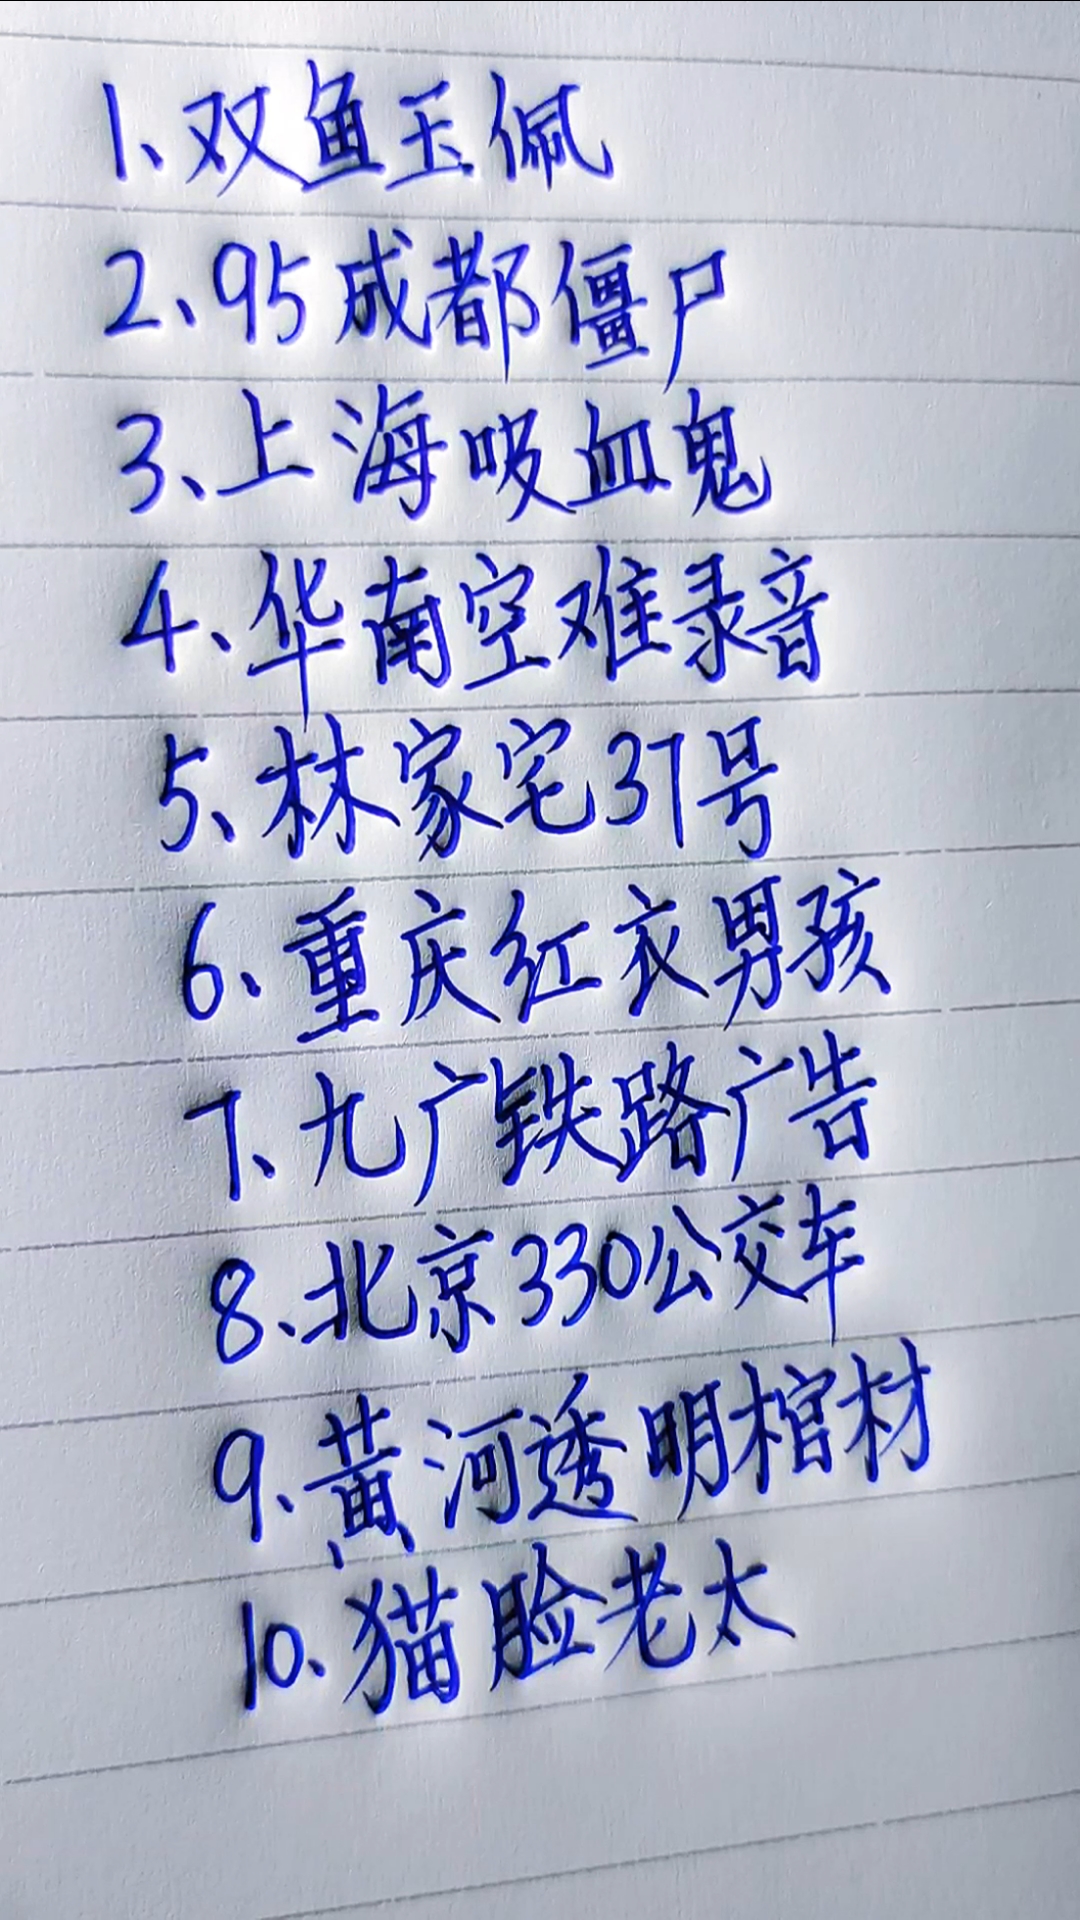 1、双鱼玉佩
2、95成都僵尸
3、上海吸血鬼
4、华南空难录音
5、林家宅37号
6、重庆红衣男孩
7、九广铁路广告
8、北京330公交车
9、黄河透明棺材
10、猫脸老太